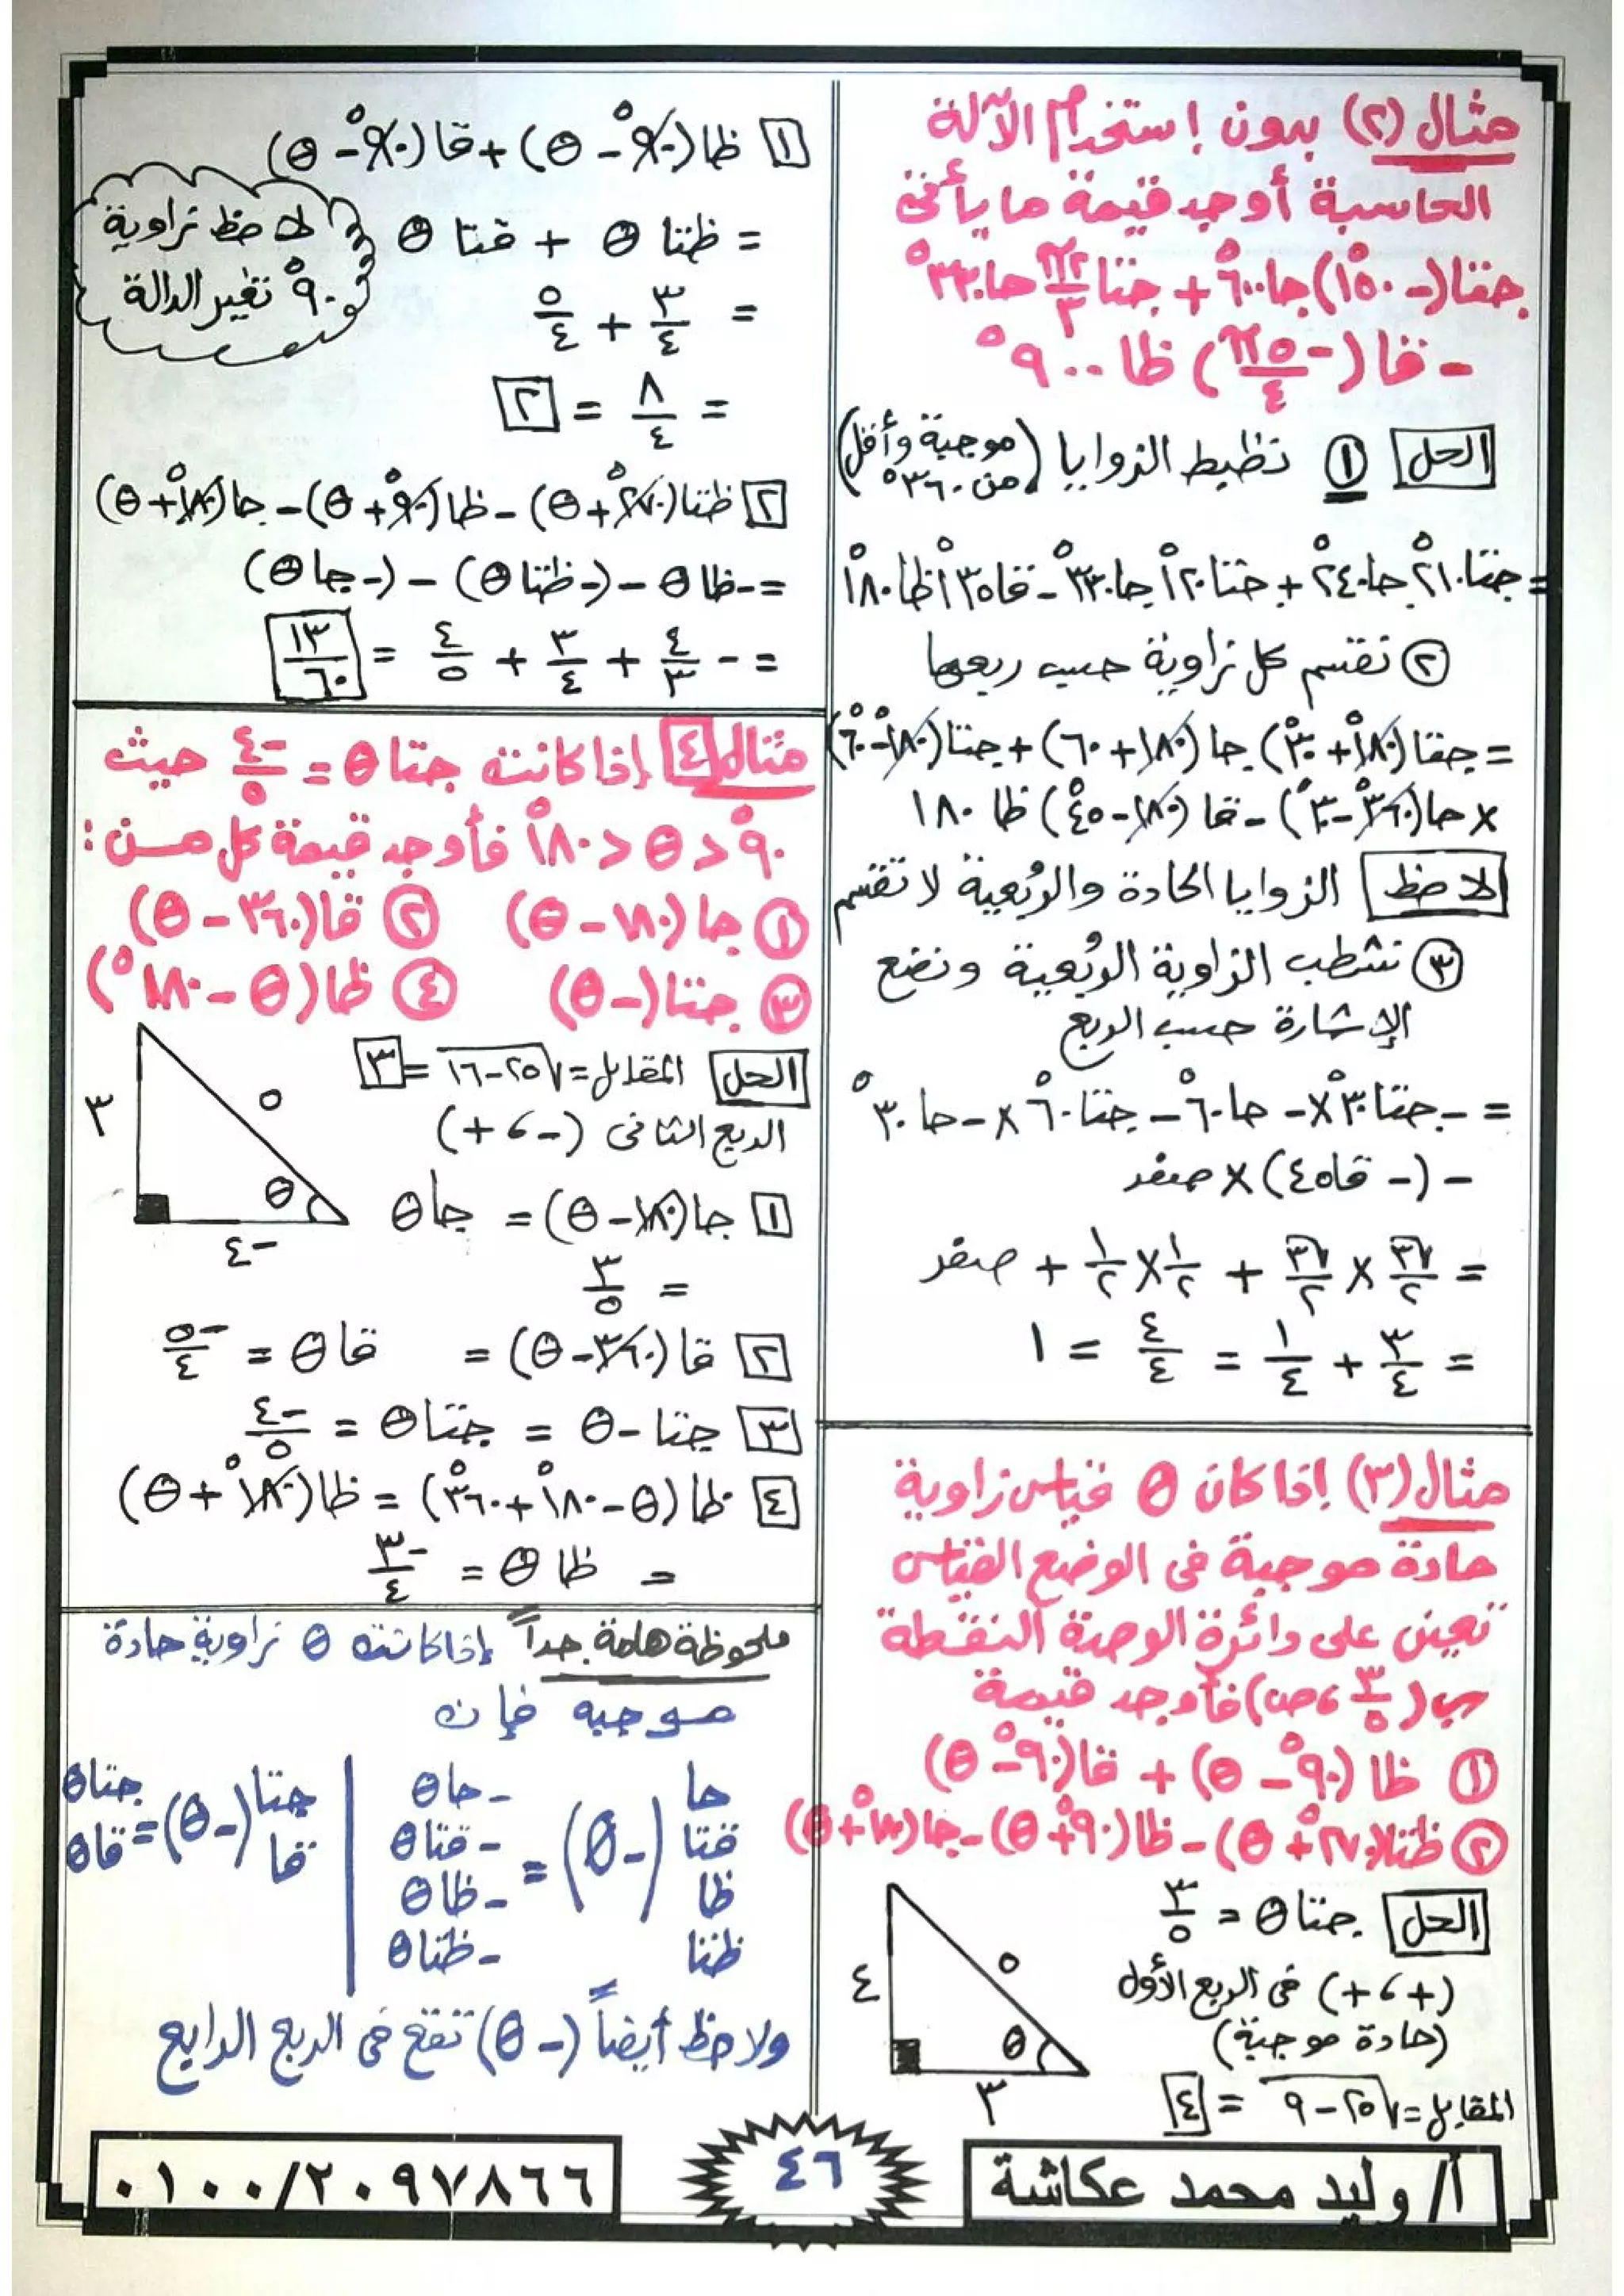 مثال (٢) بدون إستخدام الآلة
الحاسبة أوجد قيمة ما يأتى
جتا(-١٥٠°)جا٦٠٠° + جتا٢π/٣ جا٣٣٠°
- قا(-٥π/٤) ظا ٩٠٠°
الحل ① نظبط الزوايا (موجبة وأقل من ٣٦٠°)
= جتا٢١٠° جا٢٤٠° + جتا١٢٠° جا٣٣٠° - قا١٣٥° ظا١٨٠°
② نقسم كل زاوية حسب ربعها
= جتا(١٨٠°+٣٠°) جا(١٨٠+٦٠) + جتا(١٨٠°-٦٠°)
× جا(٣٦٠°-٣٠°) - قا(١٨٠-٤٥°) ظا ١٨٠
لاحظ الزوايا الحادة والرُبعية لا تقسم
③ نشطب الزاوية الرُبعية ونضع
الإشارة حسب الربع
= - جتا٣٠° × - جا٦٠° - جتا٦٠° × - جا٣٠°
- (- قا٤٥) × صفر
= √٣/٢ × √٣/٢ + ١/٢ × ١/٢ + صفر
= ٣/٤ + ١/٤ = ٤/٤ = ١
مثال (٣) إذا كان θ قياس زاوية
حادة موجبة فى الوضع القياسى
تعين على دائرة الوحدة النقطة
ب(٣/٥ ، ص) فأوجد قيمة
① ظا (٩٠° - θ) + قا(٩٠° - θ)
② ظتا(٢٧٠° + θ) - ظا(٩٠° + θ) - جا(١٨٠° + θ)
الحل جتا θ = ٣/٥
(+ ، +) فى الربع الأول
(حادة موجبة)
المقابل = √٢٥-٩ = ٤
٤
٥
θ
٣
١ ظا(٩٠° - θ) + قا(٩٠° - θ)
= ظتا θ + قتا θ
لاحظ زاوية
٩٠° تغير الدالة
= ٣/٤ + ٥/٤
= ٨/٤ = ٢
٢ ظتا(٢٧٠° + θ) - ظا(٩٠° + θ) - جا(١٨٠° + θ)
= - ظا θ - (- ظتا θ) - (- جا θ)
= - ٤/٣ + ٣/٤ + ٤/٥ = ١٣/٦٠
مثال ٤ إذا كانت جتا θ = -٤/٥ حيث
٩٠° < θ < ١٨٠° فأوجد قيمة كل من :
① جا (١٨٠ - θ) ② قا(٣٦٠ - θ)
③ جتا(- θ) ④ ظا(θ - ١٨٠°)
الحل المقابل = √٢٥-١٦ = ٣
الربع الثانى (- ، +)
٣
٥
θ
-٤
١ جا(١٨٠° - θ) = جا θ
= ٣/٥
٢ قا(٣٦٠ - θ) = قا θ = -٥/٤
٣ جتا - θ = جتا θ = -٤/٥
٤ ظا(θ - ١٨٠° + ٣٦٠°) = ظا(١٨٠° + θ)
= ظا θ = -٣/٤
ملحوظة هامة جداً إذا كانت θ زاوية حادة
موجبه فإن
جا - جا θ
قتا (- θ) = - قتا θ
ظا - ظا θ
ظتا - ظتا θ
جتا (- θ) = جتا θ
قا قا θ
ولاحظ أيضاً (- θ) تقع فى الربع الرابع
أ/ وليد محمد عكاشة
٤٦
٠١٠٠/٢٠٩٧٨٦٦